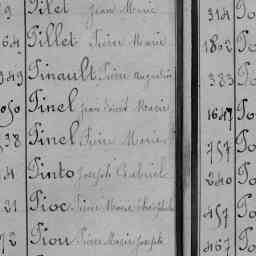 9 Pilet Jean Marie 314 Po
64 Pillet Pierre Marie 1802 Po
949 Pinault Pierre Augustin 383 Po
050 Pinel Jean Marie 1647 Po
38 Pinel Pierre Marie 757 Po
4 Pinto Joseph Gabriel 240 Po
21 Pioc Pierre Marie 457 Po
72 Piou Pierre Marie Joseph 467 Po